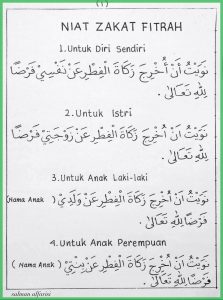 (1)
NIAT ZAKAT FITRAH
1. Untuk Diri Sendiri
نَوَيْتُ أَنْ أُخْرِجَ زَكَاةَ الْفِطْرِ عَنْ نَفْسِيْ فَرْضًا
لِلّٰهِ تَعَالَى .
2. Untuk Istri
نَوَيْتُ أَنْ أُخْرِجَ زَكَاةَ الْفِطْرِ عَنْ زَوْجَتِيْ فَرْضًا
لِلّٰهِ تَعَالَى .
3. Untuk Anak Laki-laki
نَوَيْتُ أَنْ أُخْرِجَ زَكَاةَ الْفِطْرِ عَنْ وَلَدِيْ (Nama Anak)
فَرْضًا لِلّٰهِ تَعَالَى .
4. Untuk Anak Perempuan
نَوَيْتُ أَنْ أُخْرِجَ زَكَاةَ الْفِطْرِ عَنْ بِنْتِيْ (Nama Anak)
فَرْضًا لِلّٰهِ تَعَالَى .
salman alfarisi